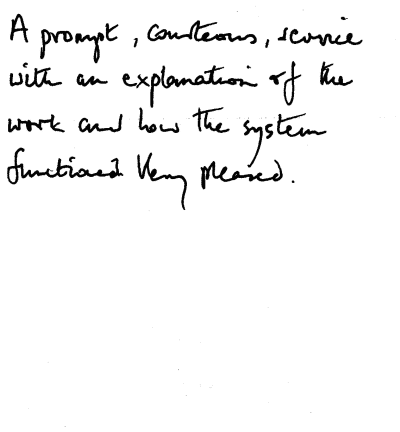 A prompt, courteous, service
with an explanation of the
work and how the system
functioned. Very pleased.